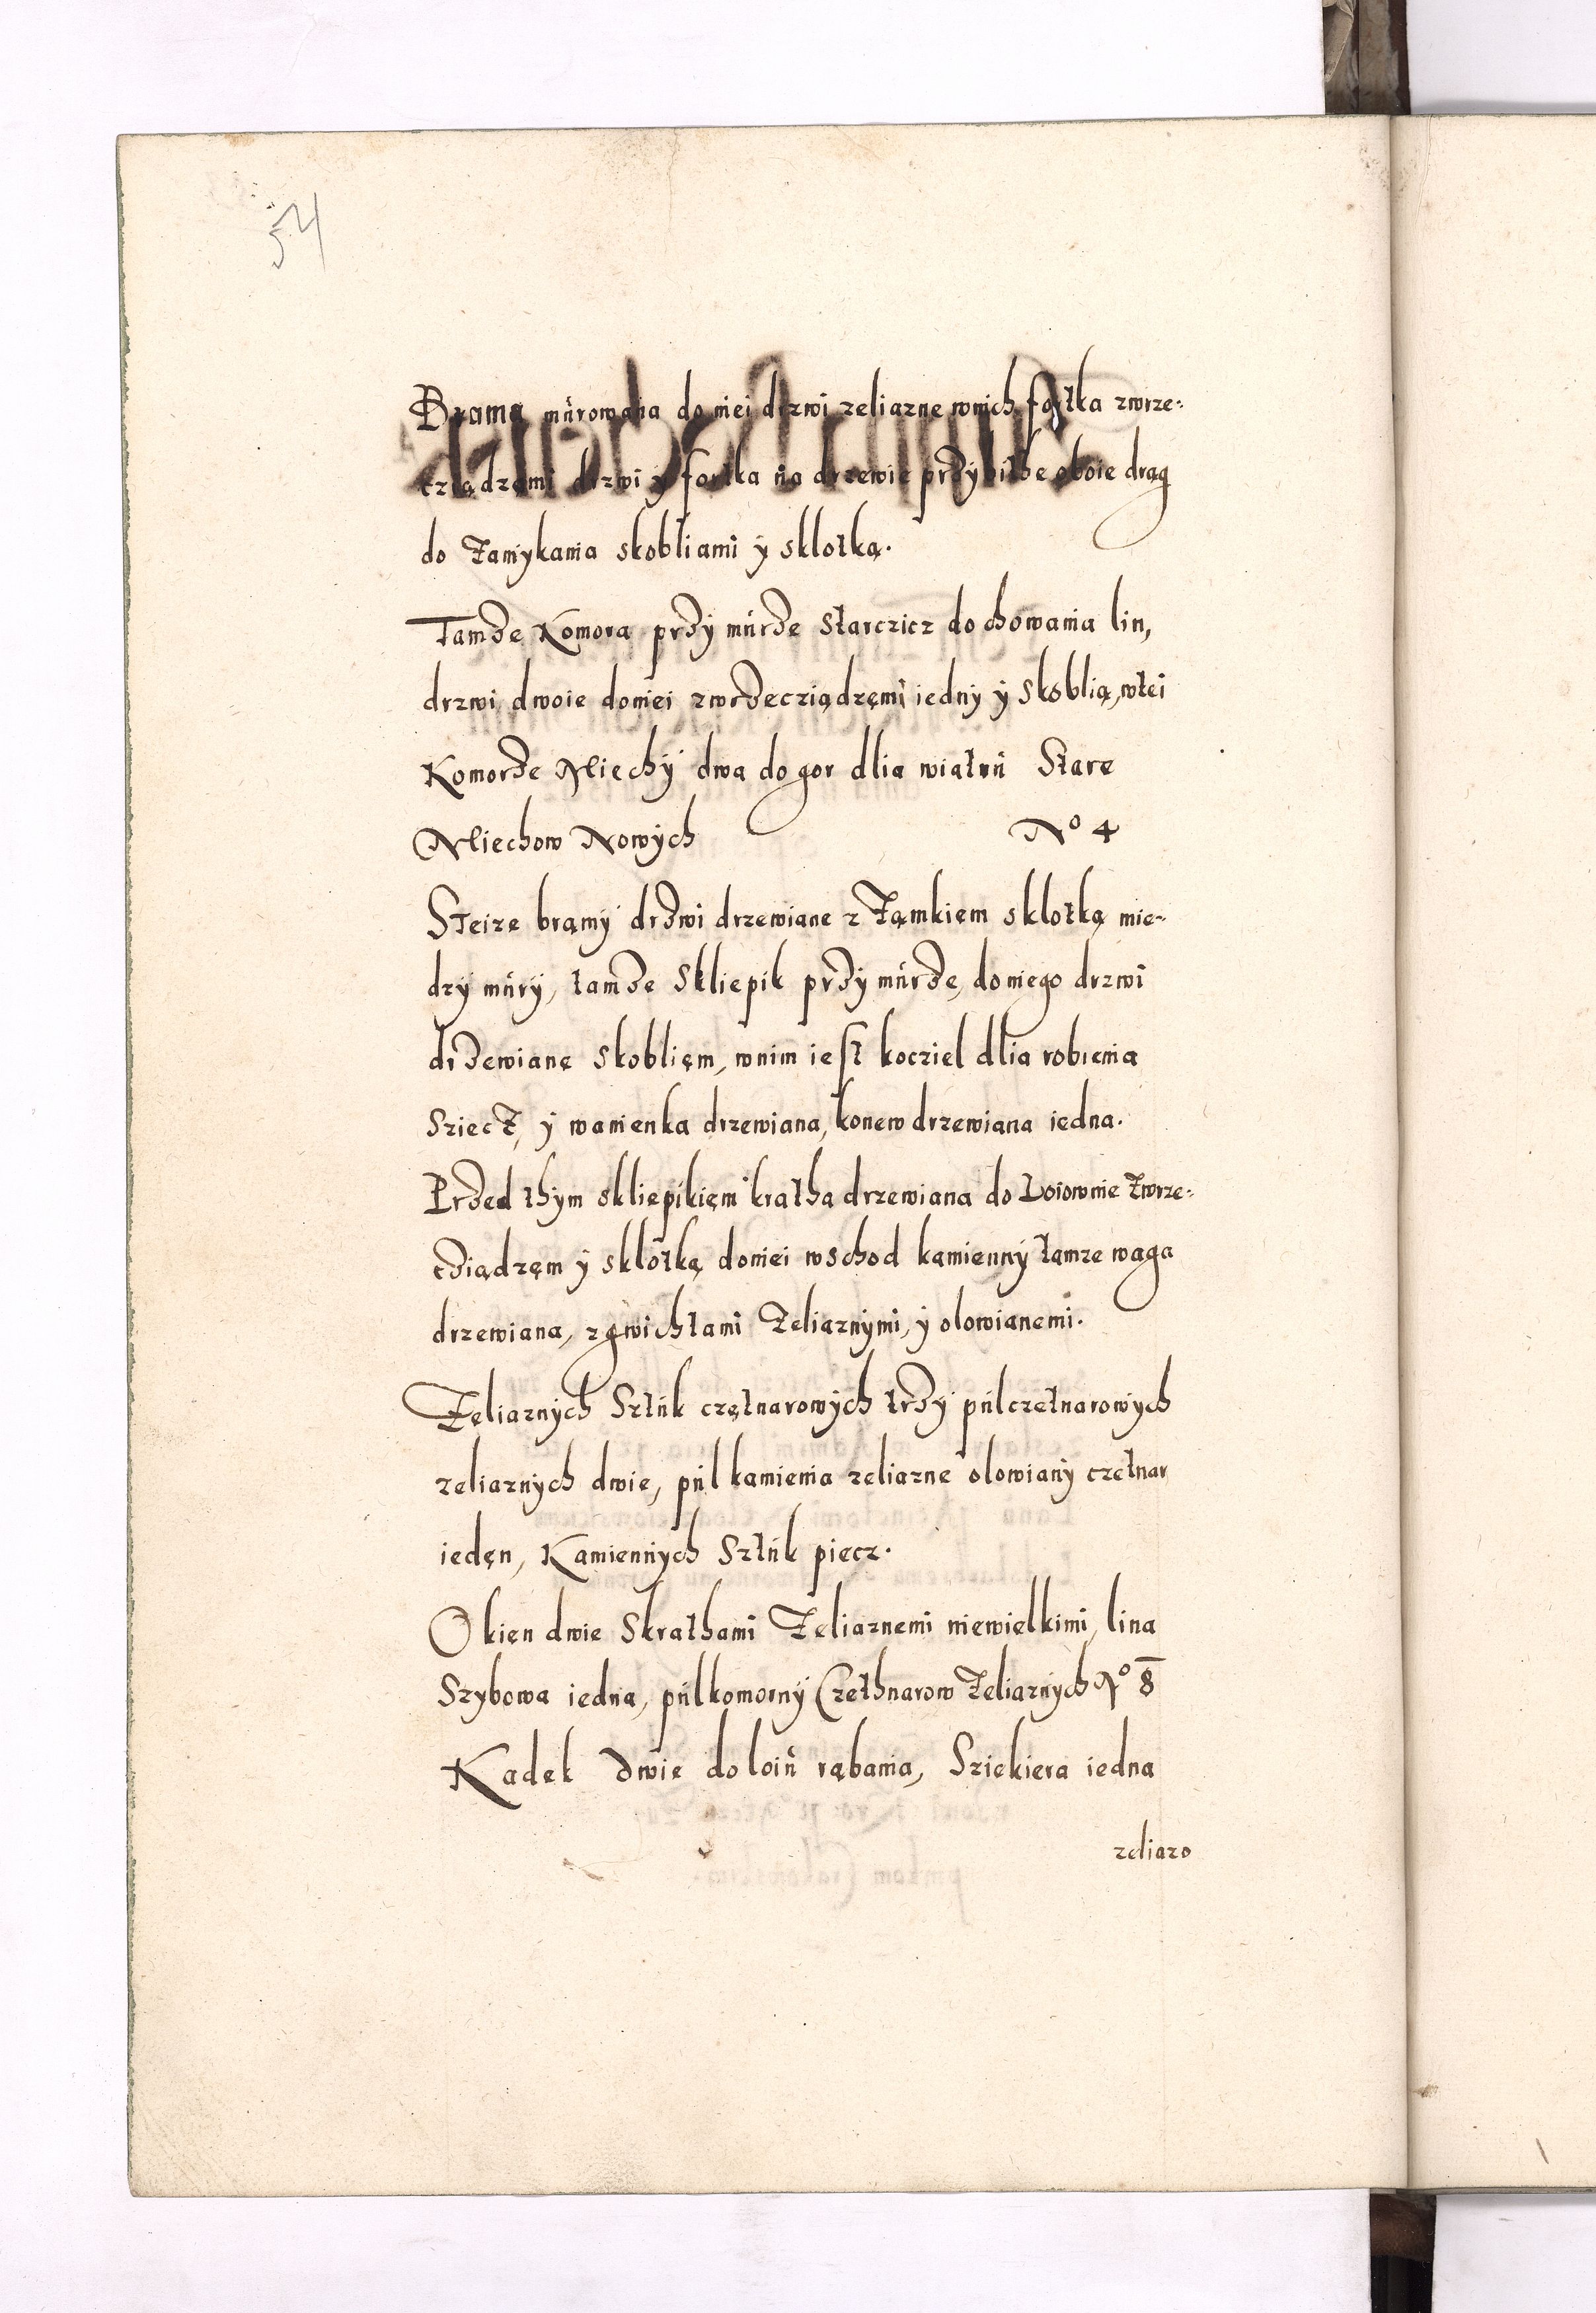 54
Brama múrowana do niei drzwi zeliazne wnich fortka zwrze-
cziądzami drzwi ÿ fortka na drzewie przÿbithe oboie drąg
do Zamÿkania skobliami ÿ sklotką.
Tamże Komora przÿ múrze Starczicz do chowania lin,
drzwi dwoie doniei zwrzecziądzęmi iednÿ ÿ Skoblią, wtei
Komorze Miechÿ dwa do gor dlia wiatrú Stare
Miechow Nowÿch No 4
Steize bramÿ drzwi drzewiane z Zamkiem sklotką mie-
dzÿ múrÿ, tamże Skliepik przÿ múrze, doniego drzwi
drzewiane Skobliem, wnim iest kocziel dlia robienia
Sziecz, ÿ wanienka drzewiana, konew drzewiana iedna.
Przed thÿm skliepikięm kratha drzewiana do Loiownie Zwrze-
cziądzęm ÿ sklotką doniei wschod kamiennÿ tamze waga
drzewiana, zgwichtami Zeliaznÿmi, ÿ olowianemi.
Zeliaznÿch Sztúk czętnarowÿch trzÿ púlczetnarowÿch
zeliaznÿch dwie, púl kamienia zeliazne olowianÿ czetnar
ieden, Kamiennÿch Sztúk piecz.
Okien dwie Skrathami Zeliaznemi niewielkimi, lina
Szybowa iedna, púlkomornÿ Czethnarow Zeliaznÿch No 8
Kadek dwie do loiú rąbania, Sziekiera iedna
zeliazo